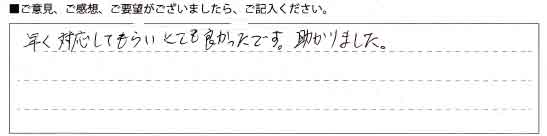 ■ご意見、ご感想、ご要望がございましたら、ご記入ください。
早く対応してもらいとても良かったです。助かりました。